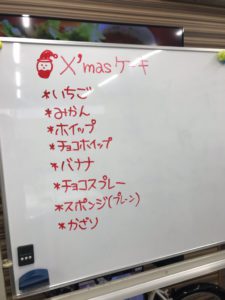 X'masケーキ
*いちご
*みかん
*ホイップ
*チョコホイップ
*バナナ
*チョコスプレー
*スポンジ(プレーン)
*かざり